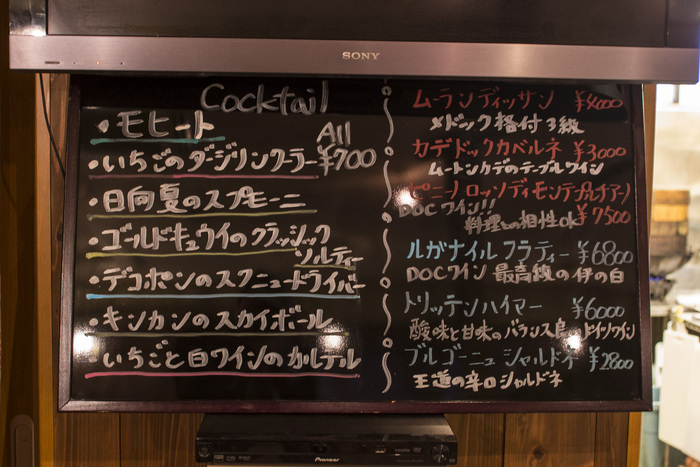 SONY
Cocktail
All ¥700
・モヒート
・いちごのダージリンクーラー
・日向夏のスプモーニ
・ゴールドキュウイのクラッシック
ソルティー
・デコポンのスクュードライバー
・キンカンのスカイボール
・いちごと白ワインのカルテル
ムーランディッサン ¥4000
メドック格付3級
カデドックカベルネ ¥3000
ムートンカデのテーブルワイン
ピニノロッソディモンテプルチアーノ
DOCワイン!!
料理との相性ok ¥7500
ルガナイルフラティー ¥6800
DOCワイン 最高級の伊の白
トリッテンハイマー ¥6000
酸味と甘味のバランス良のドイツワイン
ブルゴーニュシャルドネ ¥2800
王道の辛口シャルドネ
Pioneer